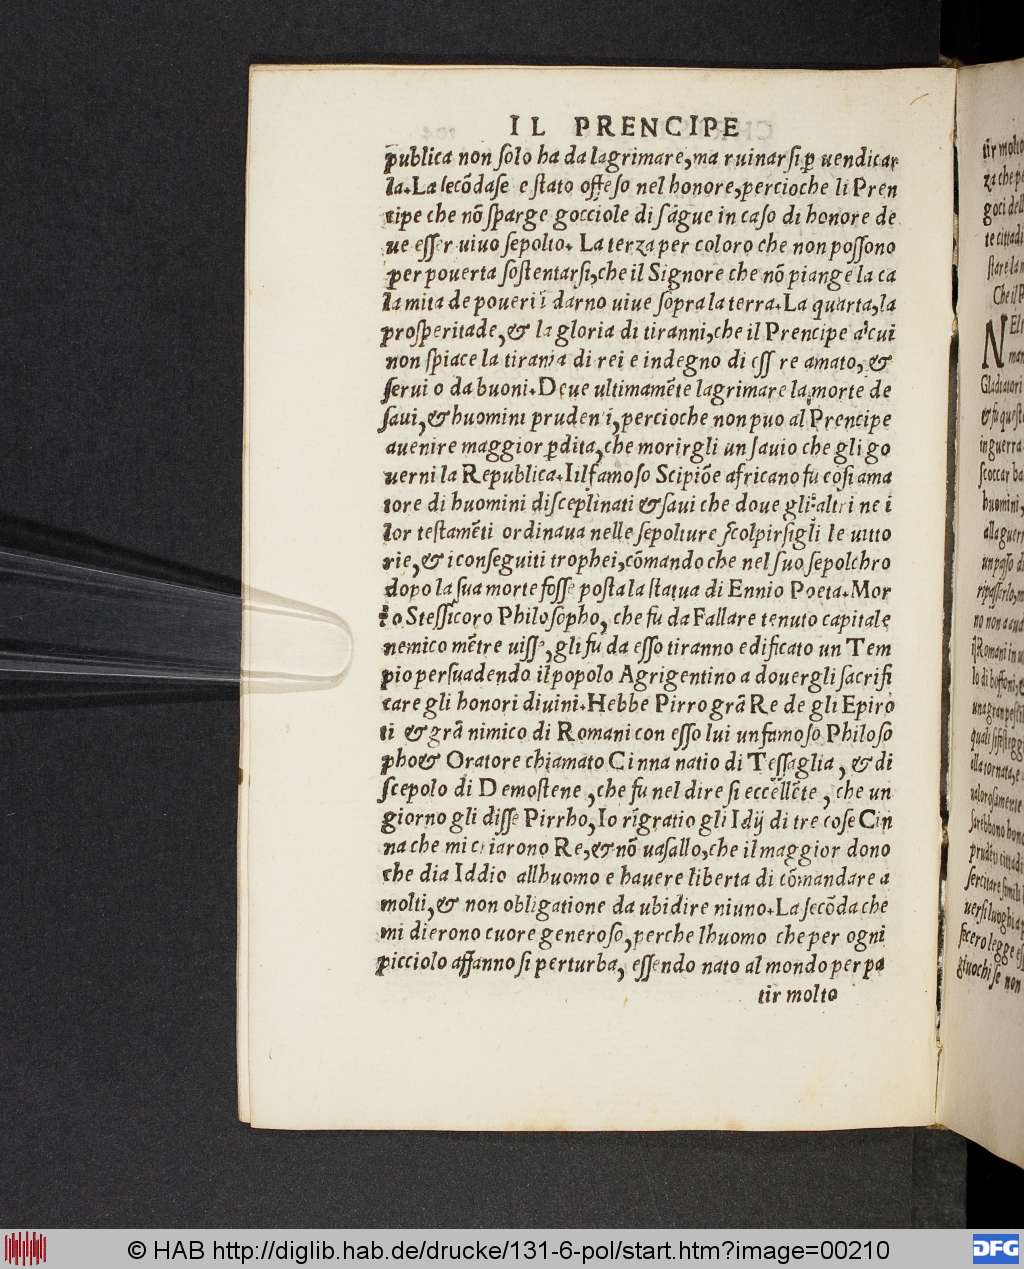 IL PRENCIPE
publica non ſolo ha da lagrimare, ma ruinarſi ꝑ uendicar
la. La ſecõda ſe e ſtato offeſo nel honore, percioche li Pren
cipe che nõ ſparge gocciole di ſãgue in caſo di honore de
ue eſſer uiuo ſepolto. La terza per coloro che non poſſono
per pouerta ſoſtentarſi, che il Signore che nõ piange la ca
lamita de poueri ĩ darno uiue ſopra la terra. La quarta, la
proſperitade, & la gloria di tiranni, che il Prencipe a cui
non ſpiace la tirania di rei e indegno di eſſ re amato, &
ſerui o da buoni. Deue ultimamẽte lagrimare la morte de
ſaui, & huomini pruden i, percioche non puo al Prencipe
auenire maggior ꝑdita, che morirgli un ſauio che gli go
uerni la Republica. Il famoſo Scipiõe africano fu coſi ama
tore di huomini diſceplinati & ſaui che doue gli altri ne i
lor teſtamẽti ordinaua nelle ſepolture ſcolpirſigli le uitto
rie, & i conſeguiti trophei, cõmando che nel ſuo ſepolchro
dopo la ſua morte foſſe poſta la ſtatua di Ennio Poeta. Mor
to Steſſicoro Philoſopho, che fu da Fallare tenuto capitale
nemico mẽtre uiſſe, gli fu da eſſo tiranno edificato un Tem
pio perſuadendo il popolo Agrigentino a douergli ſacrifi
care gli honori diuini. Hebbe Pirro grã Re de gli Epiro
ti & grã nimico di Romani con eſſo lui un famoſo Philoſo
pho & Oratore chiamato Cinna natio di Teſſaglia, & di
ſcepolo di Demoſtene, che fu nel dire ſi eccellẽte, che un
giorno gli diſſe Pirrho, Io rĩgratio gli Idij di tre coſe Cin
na che mi criarono Re, & nõ uaſallo, che il maggior dono
che dia Iddio all huomo e hauere liberta di cõmandare a
molti, & non obligatione da ubidire niuno. La ſecõda che
mi dierono cuore generoſo, perche lhuomo che per ogni
picciolo affanno ſi perturba, eſſendo nato al mondo per pa
tir molto
tir molto
za che pe
goci dell
te cittadi
ſtare la
Che il P
NEl
man
Gladiatori
& fu queſt
in guerra
ſcoccar ba
huomini,
alla guerr
un paſſo di
ripaſſarlo,
no non a
Romani in
lo di boffoni,
una gran peſti
quali ſi feſteggi
alla tornata, e
ualoroſamente
ſarebbono hono
prudẽti cittadi
ſercitare ſimili
uerſi luoghi a
fecero legge eſ
giuochi ſe non
© HAB http://diglib.hab.de/drucke/131-6-pol/start.htm?image=00210
DFG